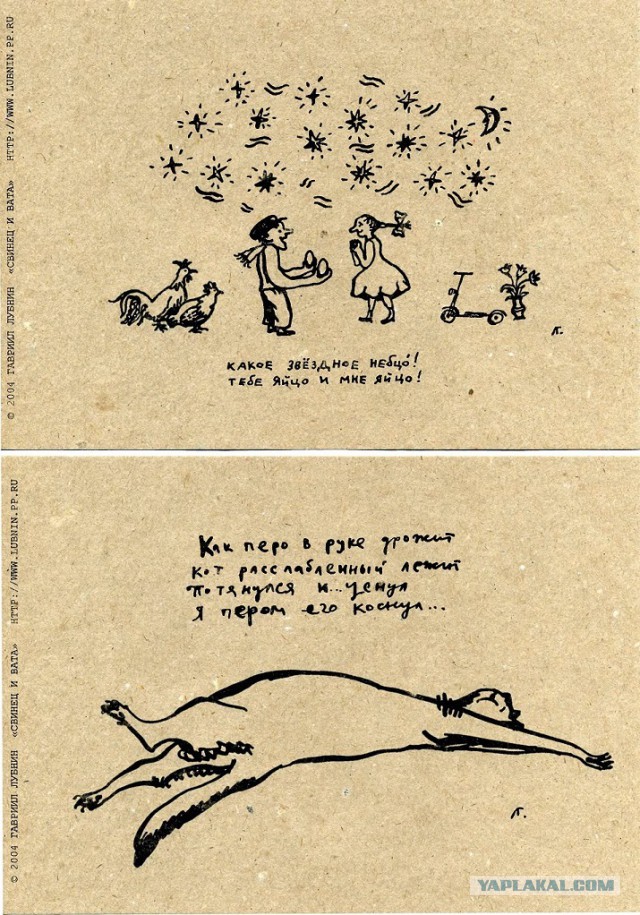 © 2004 ГАВРИИЛ ЛУБНИН «СВИНЕЦ И ВАТА» HTTP://WWW.LUBNIN.PP.RU
Л.
КАКОЕ ЗВЁЗДНОЕ НЕБЦО!
ТЕБЕ ЯЙЦО И МНЕ ЯЙЦО!
© 2004 ГАВРИИЛ ЛУБНИН «СВИНЕЦ И ВАТА» HTTP://WWW.LUBNIN.PP.RU
Как перо в руке дрожит
кот расслабленный лежит
потянулся и... уснул
я пером его коснул...
Л.
YAPLAKAL.COM